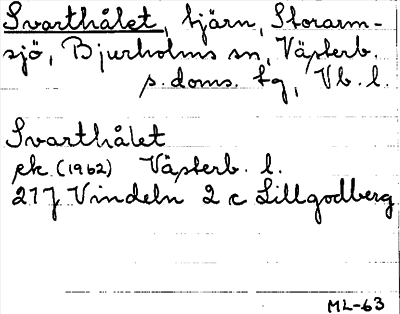 Svarthålet, tjärn, Storarm-
sjö, Bjurholms sn, Västerb.
s. doms. tg, Vb. l.
Svarthålet
ek. (1962) Västerb. l.
217 Vindeln 2 c Lillgodberg
ML-63